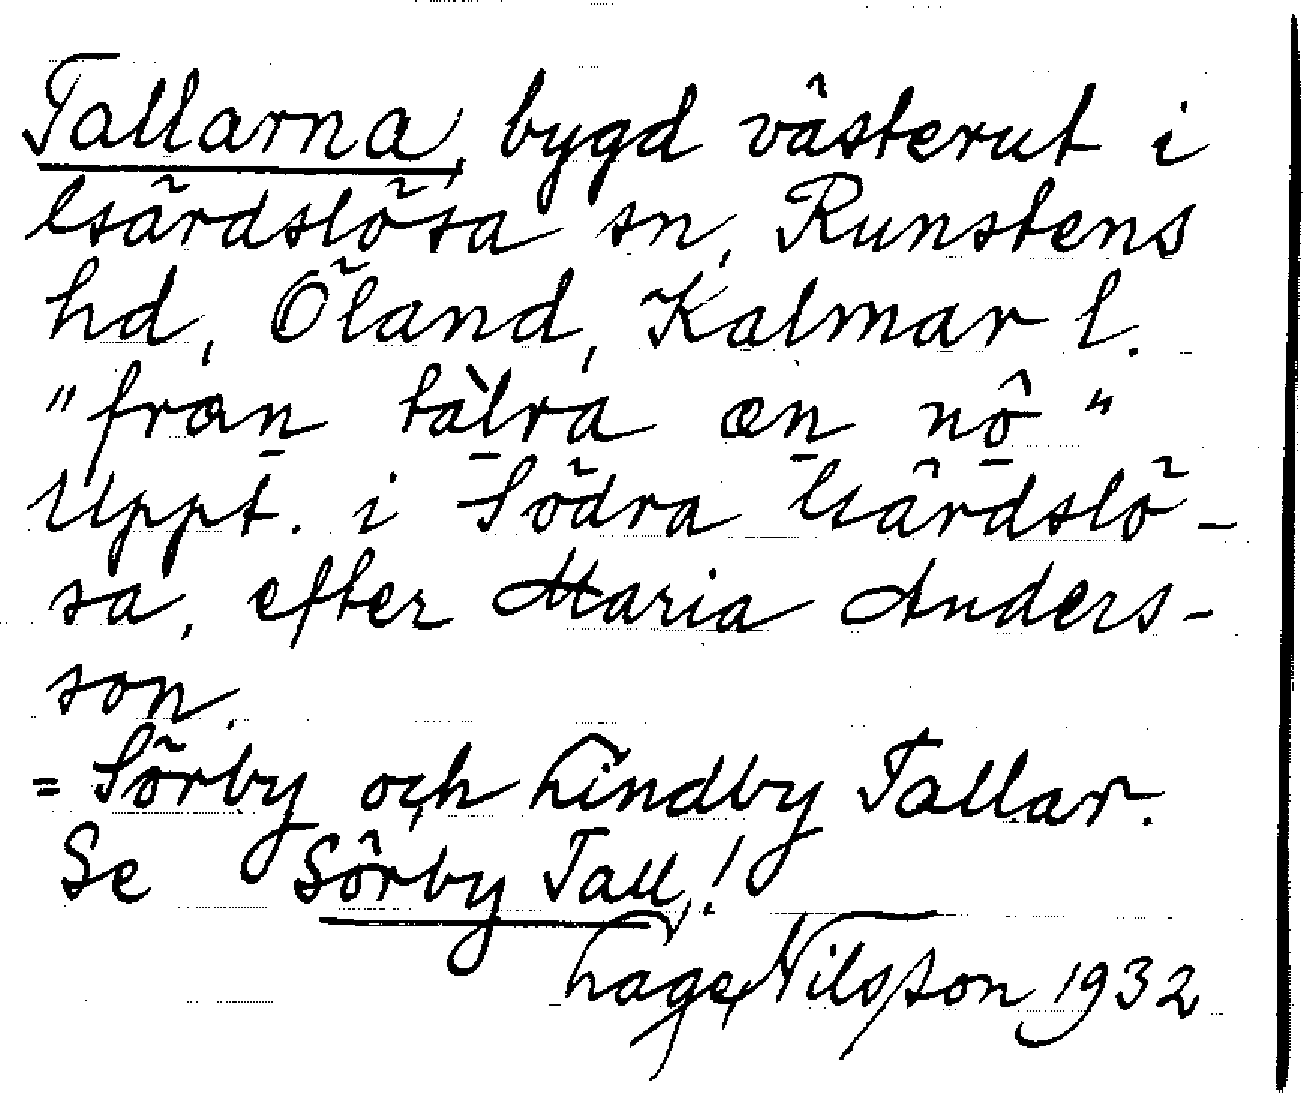 Tallarna, bygd västerut i
Gärdslösa sn, Runstens
hd, Öland, Kalmar l.
"fran tàlra æn nô"
Uppt. i Södra Gärdslö-
sa, efter Maria Anders-
son.
= Sörby och Lindby Tallar.
Se Sörby Tall,!
Lage Nilsson 1932